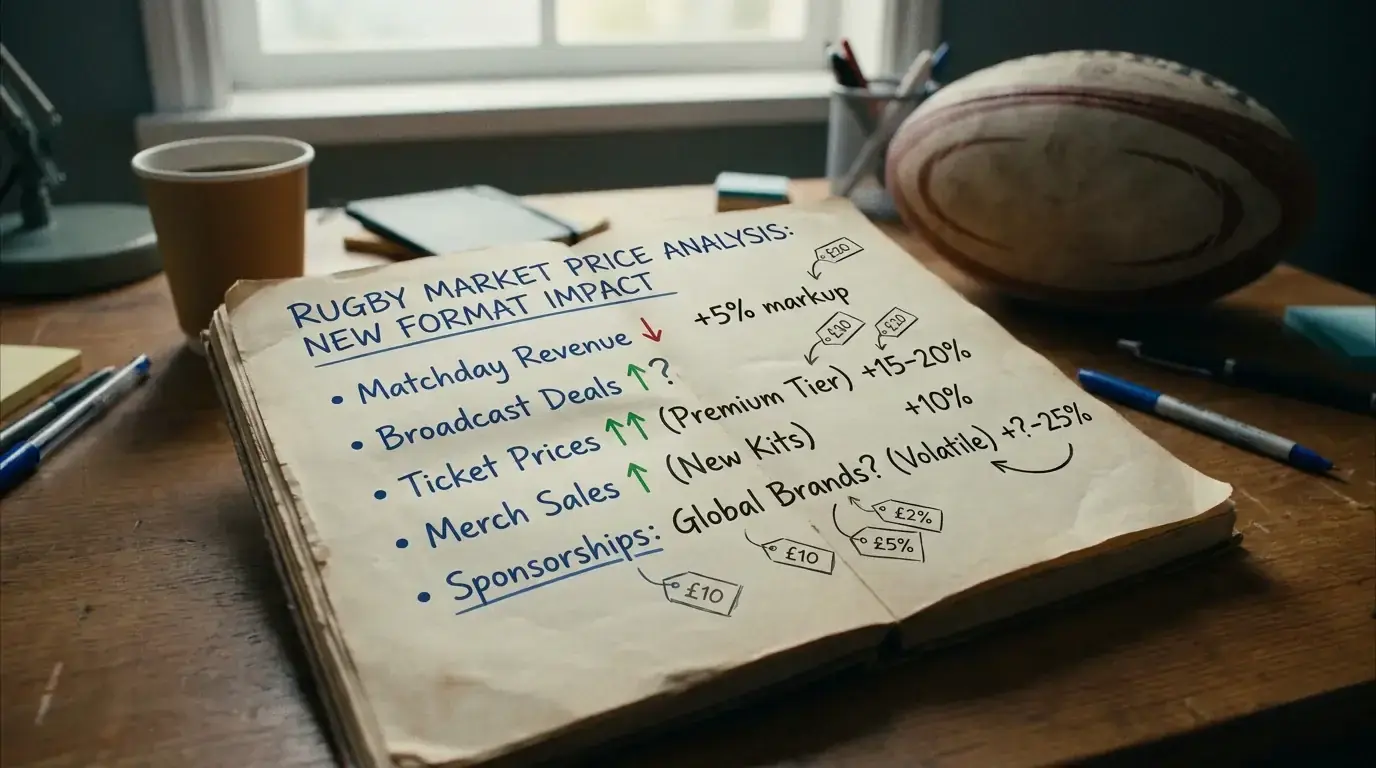 RUGBY MARKET PRICE ANALYSIS:
NEW FORMAT IMPACT
£20
+5% markup
• Matchday Revenue ↓
£20 £20
• Broadcast Deals ↑?
• Ticket Prices ↑↑ (Premium Tier) +15-20%
+10%
• Merch Sales ↑ (New Kits)
• Sponsorships: Global Brands? (Volatile) +?-25%
£2%
£5%
£10
£10